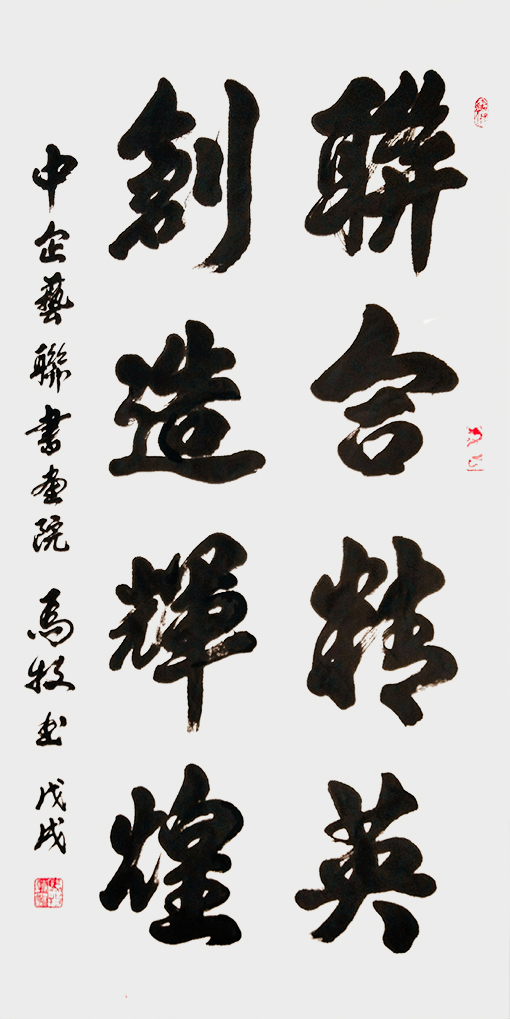 聯合精英
創造輝煌
中企藝聯書畫院 馬牧書 戊戌